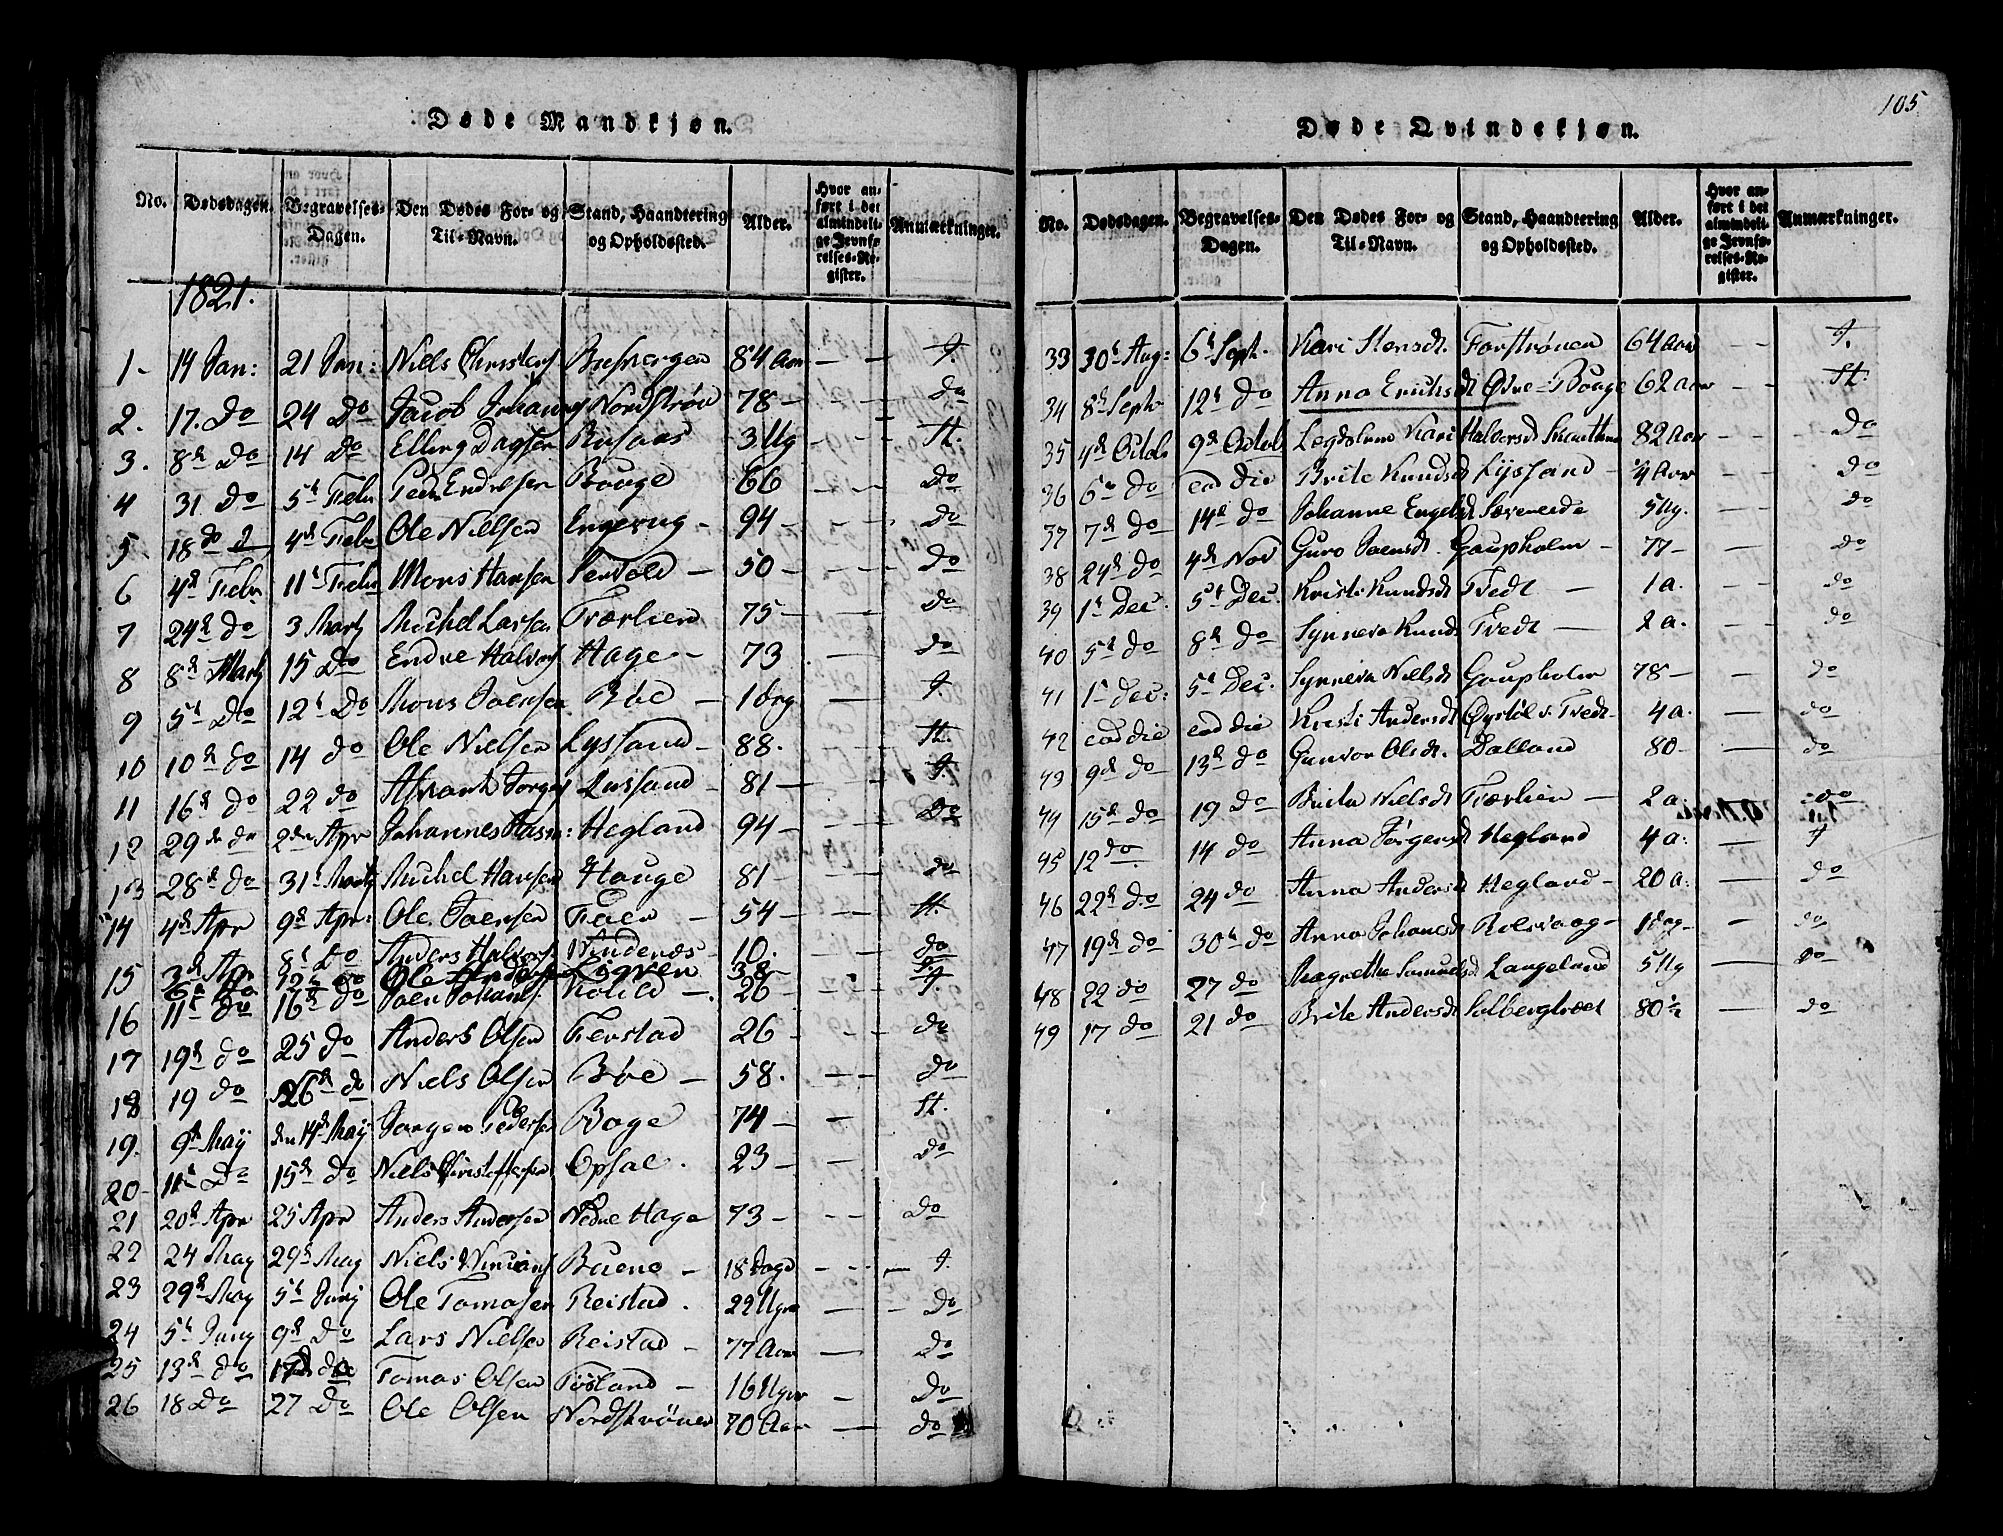 105
Døde Mandkjøn.
No. Dødsdagen. Begravelses-Dagen. Den Dødes For- og Til-Navn. Stand, Haandtering og Opholdssted. Alder. Hvor anført i det almindelige Jevnførelses-Register. Anmærkninger.
1821.
1- 14 Jan: 21 Jan: Niels 84 Aar — — f.
2. 17. Do 24 Do Jacob Nordstrøn 78 — Do
3. 8d Do 14 Do Elling Dagsen 3 Ug St.
4 31 Do 5t Febr Peder Endresen Bouge 66 — — Do
5 18 do 4d Febr Ole Nielsen Engevug - 94 — Do
6 4d Febr 11t Febr Mons Hansen — 50 — — Do
7 24d do 3 Marty Michel Larsen Tværlien 75 — — Do
8 8d Marty 15 Do Endre Halvors Hage - 73 — do
9 5t Do 12t Do Mons Joensen Böe — f.
10 10d do 14 do Ole Nielsen Lyssand - 88. — St.
11 16d do 22 do Lussand - 81 — — f.
12 29de do 2den Apr Johannes Hegland 94 — — Do
13 28d do 31t Marty Michel Hansen Hauge 81 — — do
14 4d Apr 9d Apr: Ole Joensen — 54 — — St.
15 3d Apr 8t Do Anders Halvors Vindenæs - 10. do
6 do 12t do Ole Anders 38 -
16 11t do 16d do Joen Johans Kolild — 26 — f.
17 19d do 25 do Anders Olsen Ferstad 26 — — do
18 19 do 26d do Niels Olsen Böe — 58. — do
19. 9d Maÿ den 14d Maÿ Jørgen Pedersen Boge 74 — — St.
20 - 11t Do 15d do Niels Christophersen Opsal. 23 — Do
21 20d Apr 25 Apr Anders Andersen Nedre Hage 73 — Do
22 24 May 29d May Niels Buene — 18 Dage — f.
23 29d May 5t Juny Ole Tomasen Reistad. 22 Uger — Do
24 5t Juny 9d Do Lars Nielsen Reistad — 77 Aar — Do
25 13d do 17d do Tomas Olsen Tösland — 16 Uger — Do
26 18 Do 27 Do Ole Olsen Nordstrønen 70 Aar — do
Døde Qvindekjøn.
No. Dødsdagen. Begravelses-Dagen. Den Dødes For- og Til-Navn. Stand, Haandtering og Opholdssted. Alder. Hvor anført i det almindelige Jevnførelses-Register. Anmærkninger.
33 30t Aug: 6t Sept. Kari Stensdt. Forstrønen 64 Aar — f.
34 8d Sept 12t Do Anna Eriksdt Øvre-Bouge 62 Aar — St.
35 4d Octob 9d Octob Legdslem Kari Halvorsdt 82 Aar — Do
36 6te Do ead die Brite Knudsdt Lyssand — ¼ Aar — do
37 7d do 14d do Johanne Engelsdt Særvende 5 Ug. — do
38 24d do 4d Nov Guro Joensdt. Gaupholm — 77 — — do
39 1t Dec. 5t Dec. Kristi Knudsdt Tvedt — 1 a. — do
40 5d do 8d do Synneva Knuds Tvedt — 2 a. — do
41 1t Dec: 5t Dec. Synneva Nielsdt Gaupholm 78 — — do
42 ead die ead die Kristi Andersdt Øystöl v. Tvedt 4 a. — do
43 9d do 13d do Gunvor Olsdt. Dalland 80 — — do
44 15d do 19 do Brita Nielsdt Tværlien — 2 a.
45 12 do 14 do Anna Jørgensdt Hegland 4 a: — f
46 22d do 24 do Anna Andersdt Hegland — 20 a: — do
47 19d do 30t do Anna Johansdt Rolsvaag — 1 dag — do
48 22 do 27 do Magrethe Samuelsdt Langeland 5 Ug — do
49 17 do 21 do Brite Andersdt Solbergtræet 80½ — do